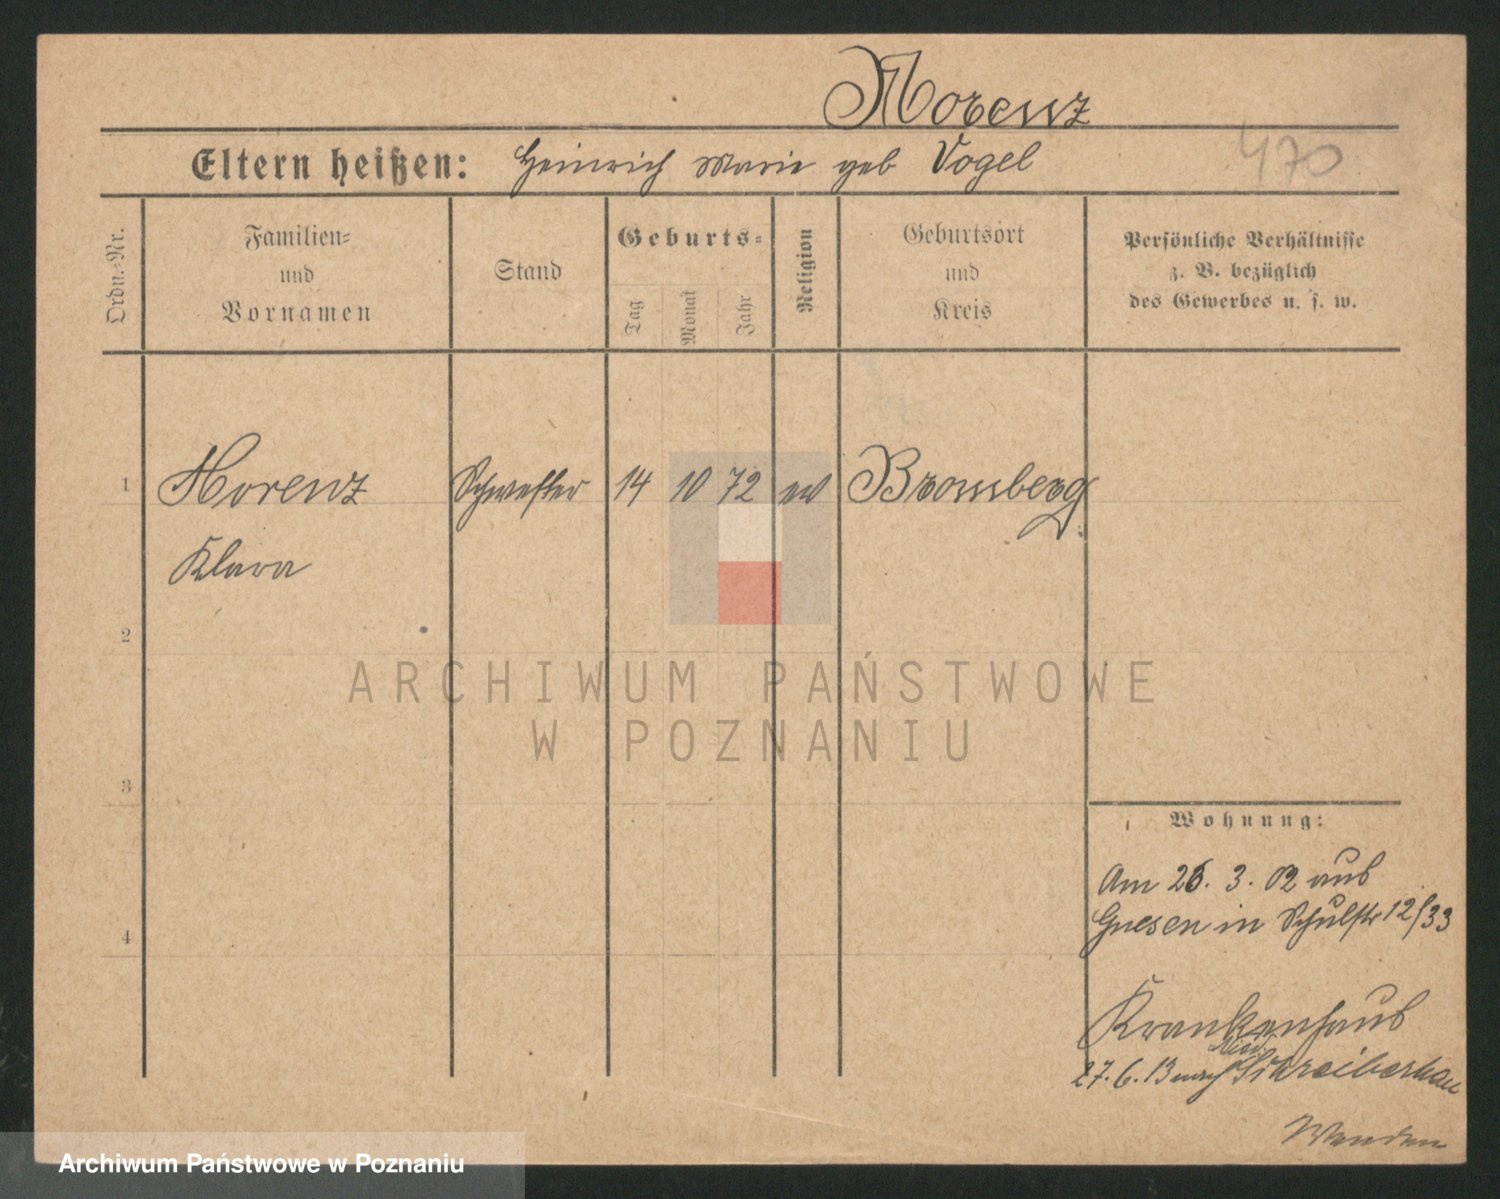 Morenz
Eltern heißen: Heinrich Marie geb Vogel
470
Ordn.-Nr.
Familien-
und
Vornamen
Stand
Geburts-
Tag
Monat
Jahr
Religion
Geburtsort
und
Kreis
Persönliche Verhältnisse
z. B. bezüglich
des Gewerbes u. s. w.
1 Morenz Schwester 14 10 72 ev Bromberg
Klara
2
3
4
Wohnung:
Am 26. 3. 02 aus
Gnesen in Schulstr 12/33
Krankenhaus
Nied.
27. 6. 13 nach Schreiberhau
Wenden
ARCHIWUM PAŃSTWOWE
W POZNANIU
Archiwum Państwowe w Poznaniu